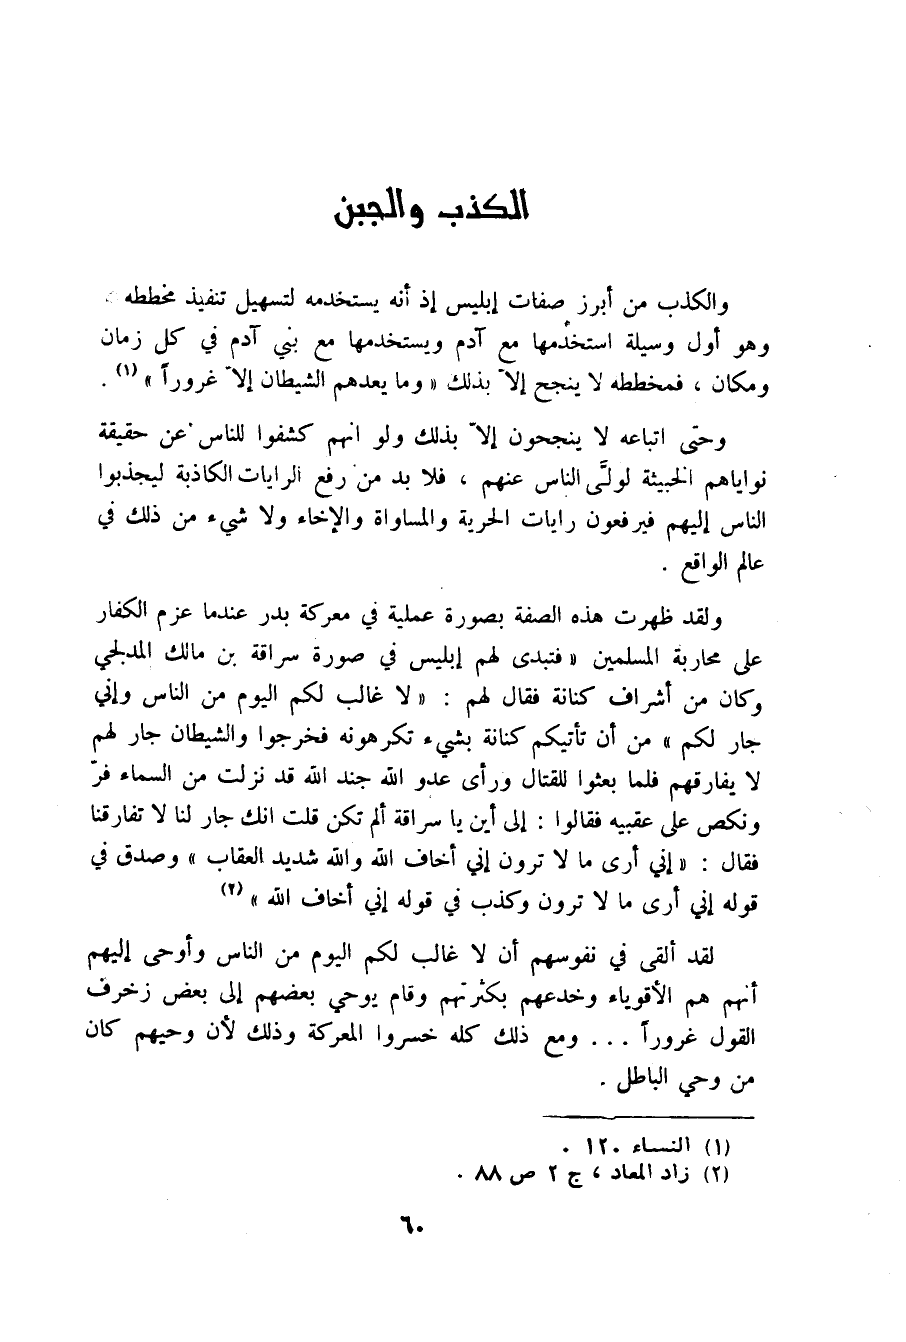 الكذب والجبن
والكذب من أبرز صفات إبليس إذ أنه يستخدمه لتسهيل تنفيذ مخططه
وهو أول وسيلة استخدمها مع آدم ويستخدمها مع بني آدم في كل زمان
ومكان ، فمخططه لا ينجح إلاّ بذلك « وما يعدهم الشيطان إلاّ غروراً » (١) .
وحتى اتباعه لا ينجحون إلاّ بذلك ولو انهم كشفوا للناس عن حقيقة
نواياهم الخبيثة لولَّى الناس عنهم ، فلا بد من رفع الرايات الكاذبة ليجذبوا
الناس إليهم فيرفعون رايات الحرية والمساواة والإخاء ولا شيء من ذلك في
عالم الواقع .
ولقد ظهرت هذه الصفة بصورة عملية في معركة بدر عندما عزم الكفار
على محاربة المسلمين « فتبدى لهم إبليس في صورة سراقة بن مالك المدلجي
وكان من أشراف كنانة فقال لهم : « لا غالب لكم اليوم من الناس وإني
جار لكم » من أن تأتيكم كنانة بشيء تكرهونه فخرجوا والشيطان جار لهم
لا يفارقهم فلما بعثوا للقتال ورأى عدو الله جند الله قد نزلت من السماء فرّ
ونكص على عقبيه فقالوا : إلى أين يا سراقة ألم تكن قلت انك جار لنا لا تفارقنا
فقال : « إني أرى ما لا ترون إني أخاف الله والله شديد العقاب » وصدق في
قوله إني أرى ما لا ترون وكذب في قوله إني أخاف الله » (٢)
لقد ألقى في نفوسهم أن لا غالب لكم اليوم من الناس وأوحى إليهم
أنهم هم الأقوياء وخدعهم بكثرتهم وقام يوحي بعضهم إلى بعض زخرف
القول غروراً ... ومع ذلك كله خسروا المعركة وذلك لأن وحيهم كان
من وحي الباطل .
(١) النساء ١٢٠ .
(٢) زاد المعاد ، ج ٢ ص ٨٨ .
٦٠